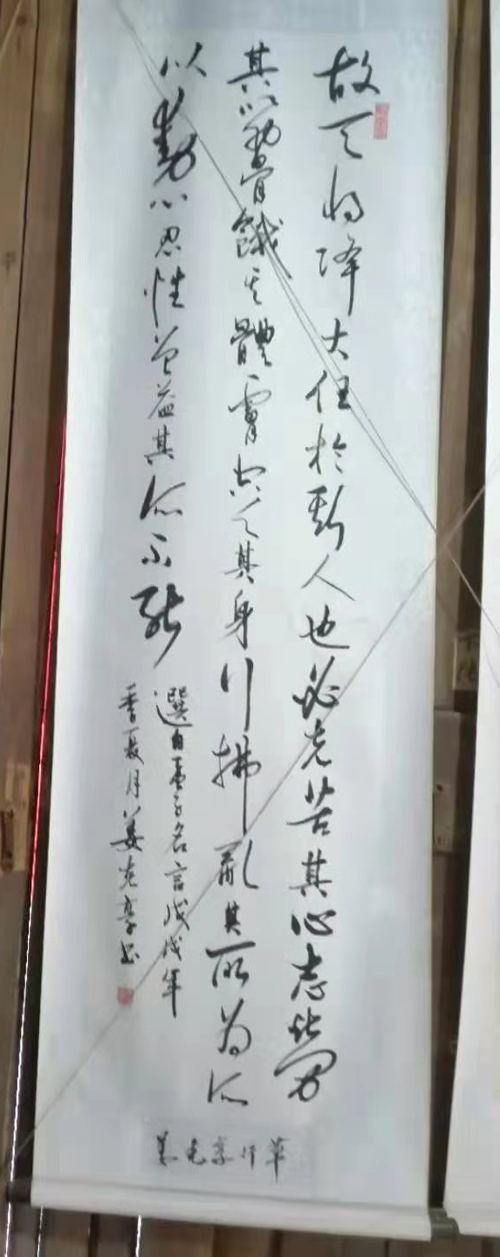 故天将降大任於斯人也必先苦其心志勞
其筋骨餓其體膚空乏其身行拂亂其所為所
以動心忍性曾益其所不能
選自孟子名言戊戌年
季夏月姜克享书
姜克享作草